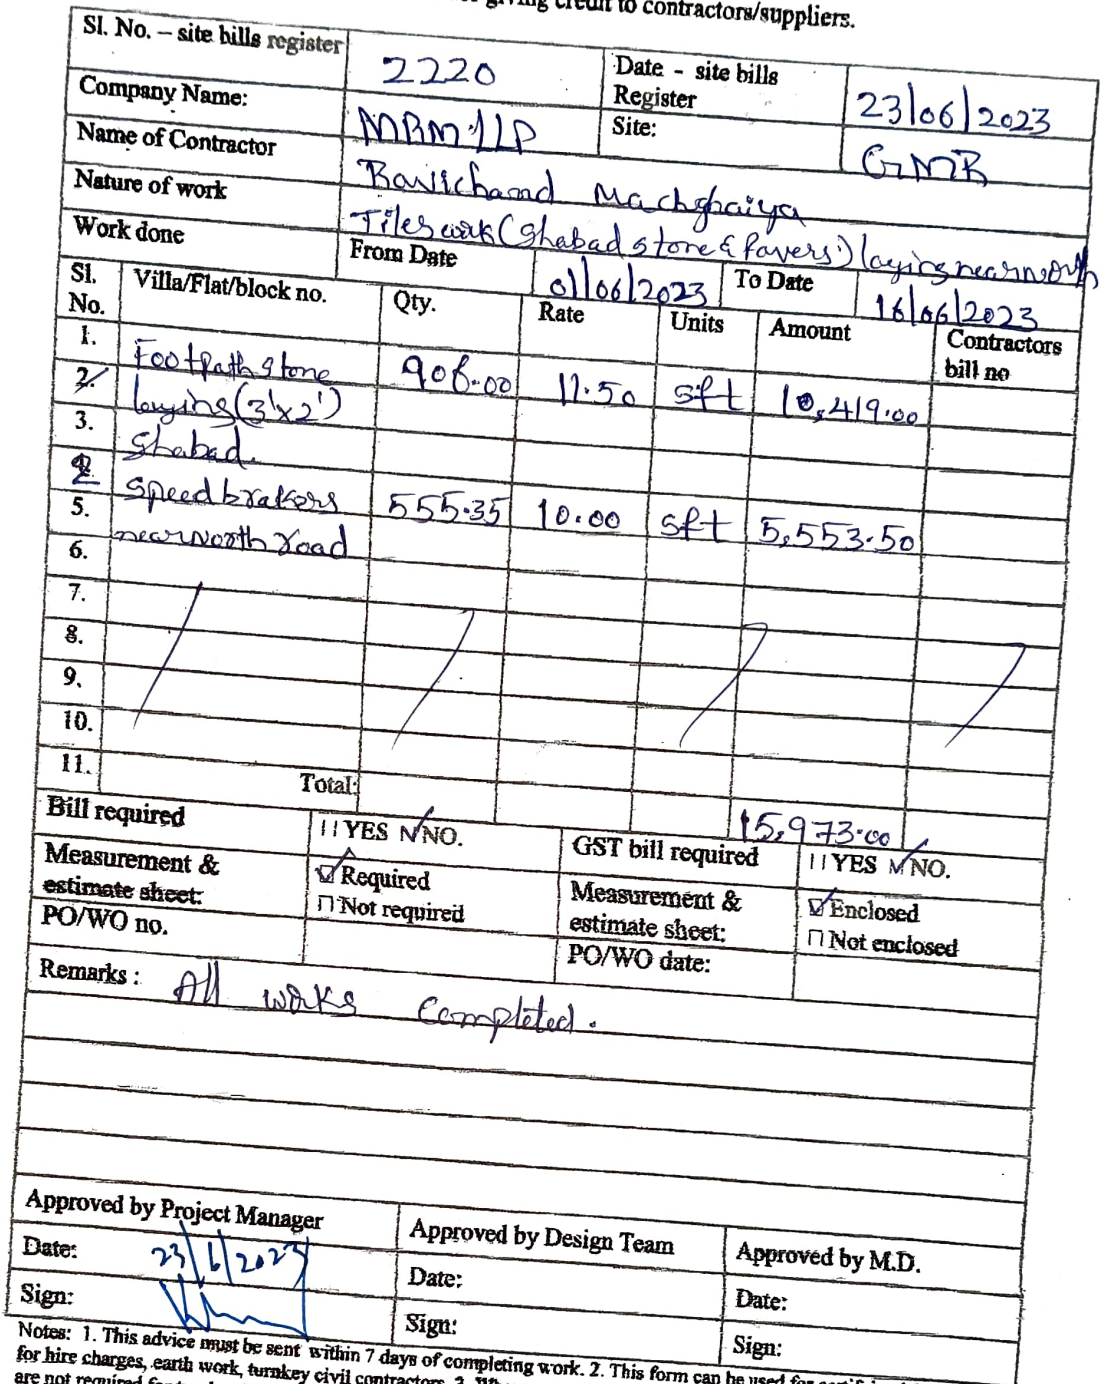 giving credit to contractors/suppliers.
Sl. No. – site bills register 2220 Date - site bills Register 23/06/2023
Company Name: MRM.LLP Site: GMR
Name of Contractor Ravichand Machghaiya
Nature of work Tiles work (Shabad stone & Pavers) laying near north
Work done From Date 01/06/2023 To Date 16/06/2023
Sl. No. Villa/Flat/block no. Qty. Rate Units Amount Contractors bill no
1. Footpath stone 906.00 11.50 sft 10,419.00
2. laying (3'x2')
3. Shabad.
2 Speed brakers 555.35 10.00 sft 5,553.50
5. near north road
6.
7.
8.
9.
10.
11.
Total: 15,973.00
Bill required YES NO. GST bill required YES NO.
Measurement & estimate sheet: Required Not required Measurement & estimate sheet: Enclosed Not enclosed
PO/WO no. PO/WO date:
Remarks : All works Completed.
Approved by Project Manager Approved by Design Team Approved by M.D.
Date: 23/6/2023 Date: Date:
Sign: Sign: Sign:
Notes: 1. This advice must be sent within 7 days of completing work. 2. This form can be used for
for hire charges, earth work, turnkey civil contractors.
are not required